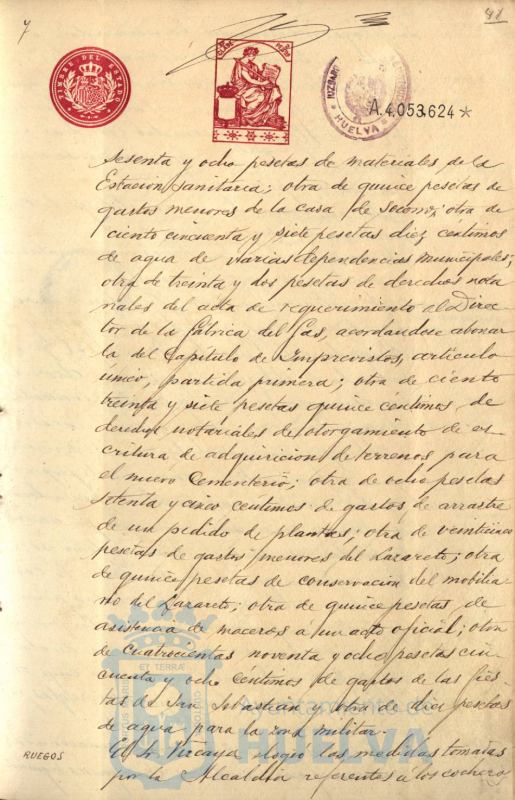 7
41
TIMBRE DEL ESTADO
JUZGADO
HUELVA
A.4.053.624*
Sesenta y ocho pesetas de materiales de la
Estación Sanitaria; otra de quince pesetas de
gastos menores de la casa de socorro; otra de
ciento cincuenta y siete pesetas diez centimos
de agua de varias dependencias municipales;
otra de treinta y dos pesetas de derechos nota
riales del acta de requerimiento al Direc
tor de la fábrica del Gas, acordandose abonar
la del Capitulo de Imprevistos, artículo
único, partida primera; otra de ciento
treinta y siete pesetas quince céntimos de
derechos notariales de otorgamiento de es
critura de adquiricion de terrenos para
el nuevo Cementerio; otra de ocho pesetas
setenta y cinco céntimos de gastos de arrastre
de un pedido de plantas; otra de veinticinco
pesetas de gastos menores del Lazareto; otra
de quince pesetas de conservacion del mobilia
rio del Lazareto; otra de quince pesetas de
asistencia de maceros á un acto oficial; otra
de cuatrocientas noventa y ocho pesetas cin
cuenta y ocho céntimos de gastos de las fies
tas de San Sebastián y otra de diez pesetas
de agua para la zona militar.
RUEGOS
El Sr. Vizcaya elogió las medidas tomadas
por la Alcaldía referentes a los cocheros
ET TERRÆ
Ayuntamiento de
HUELVA